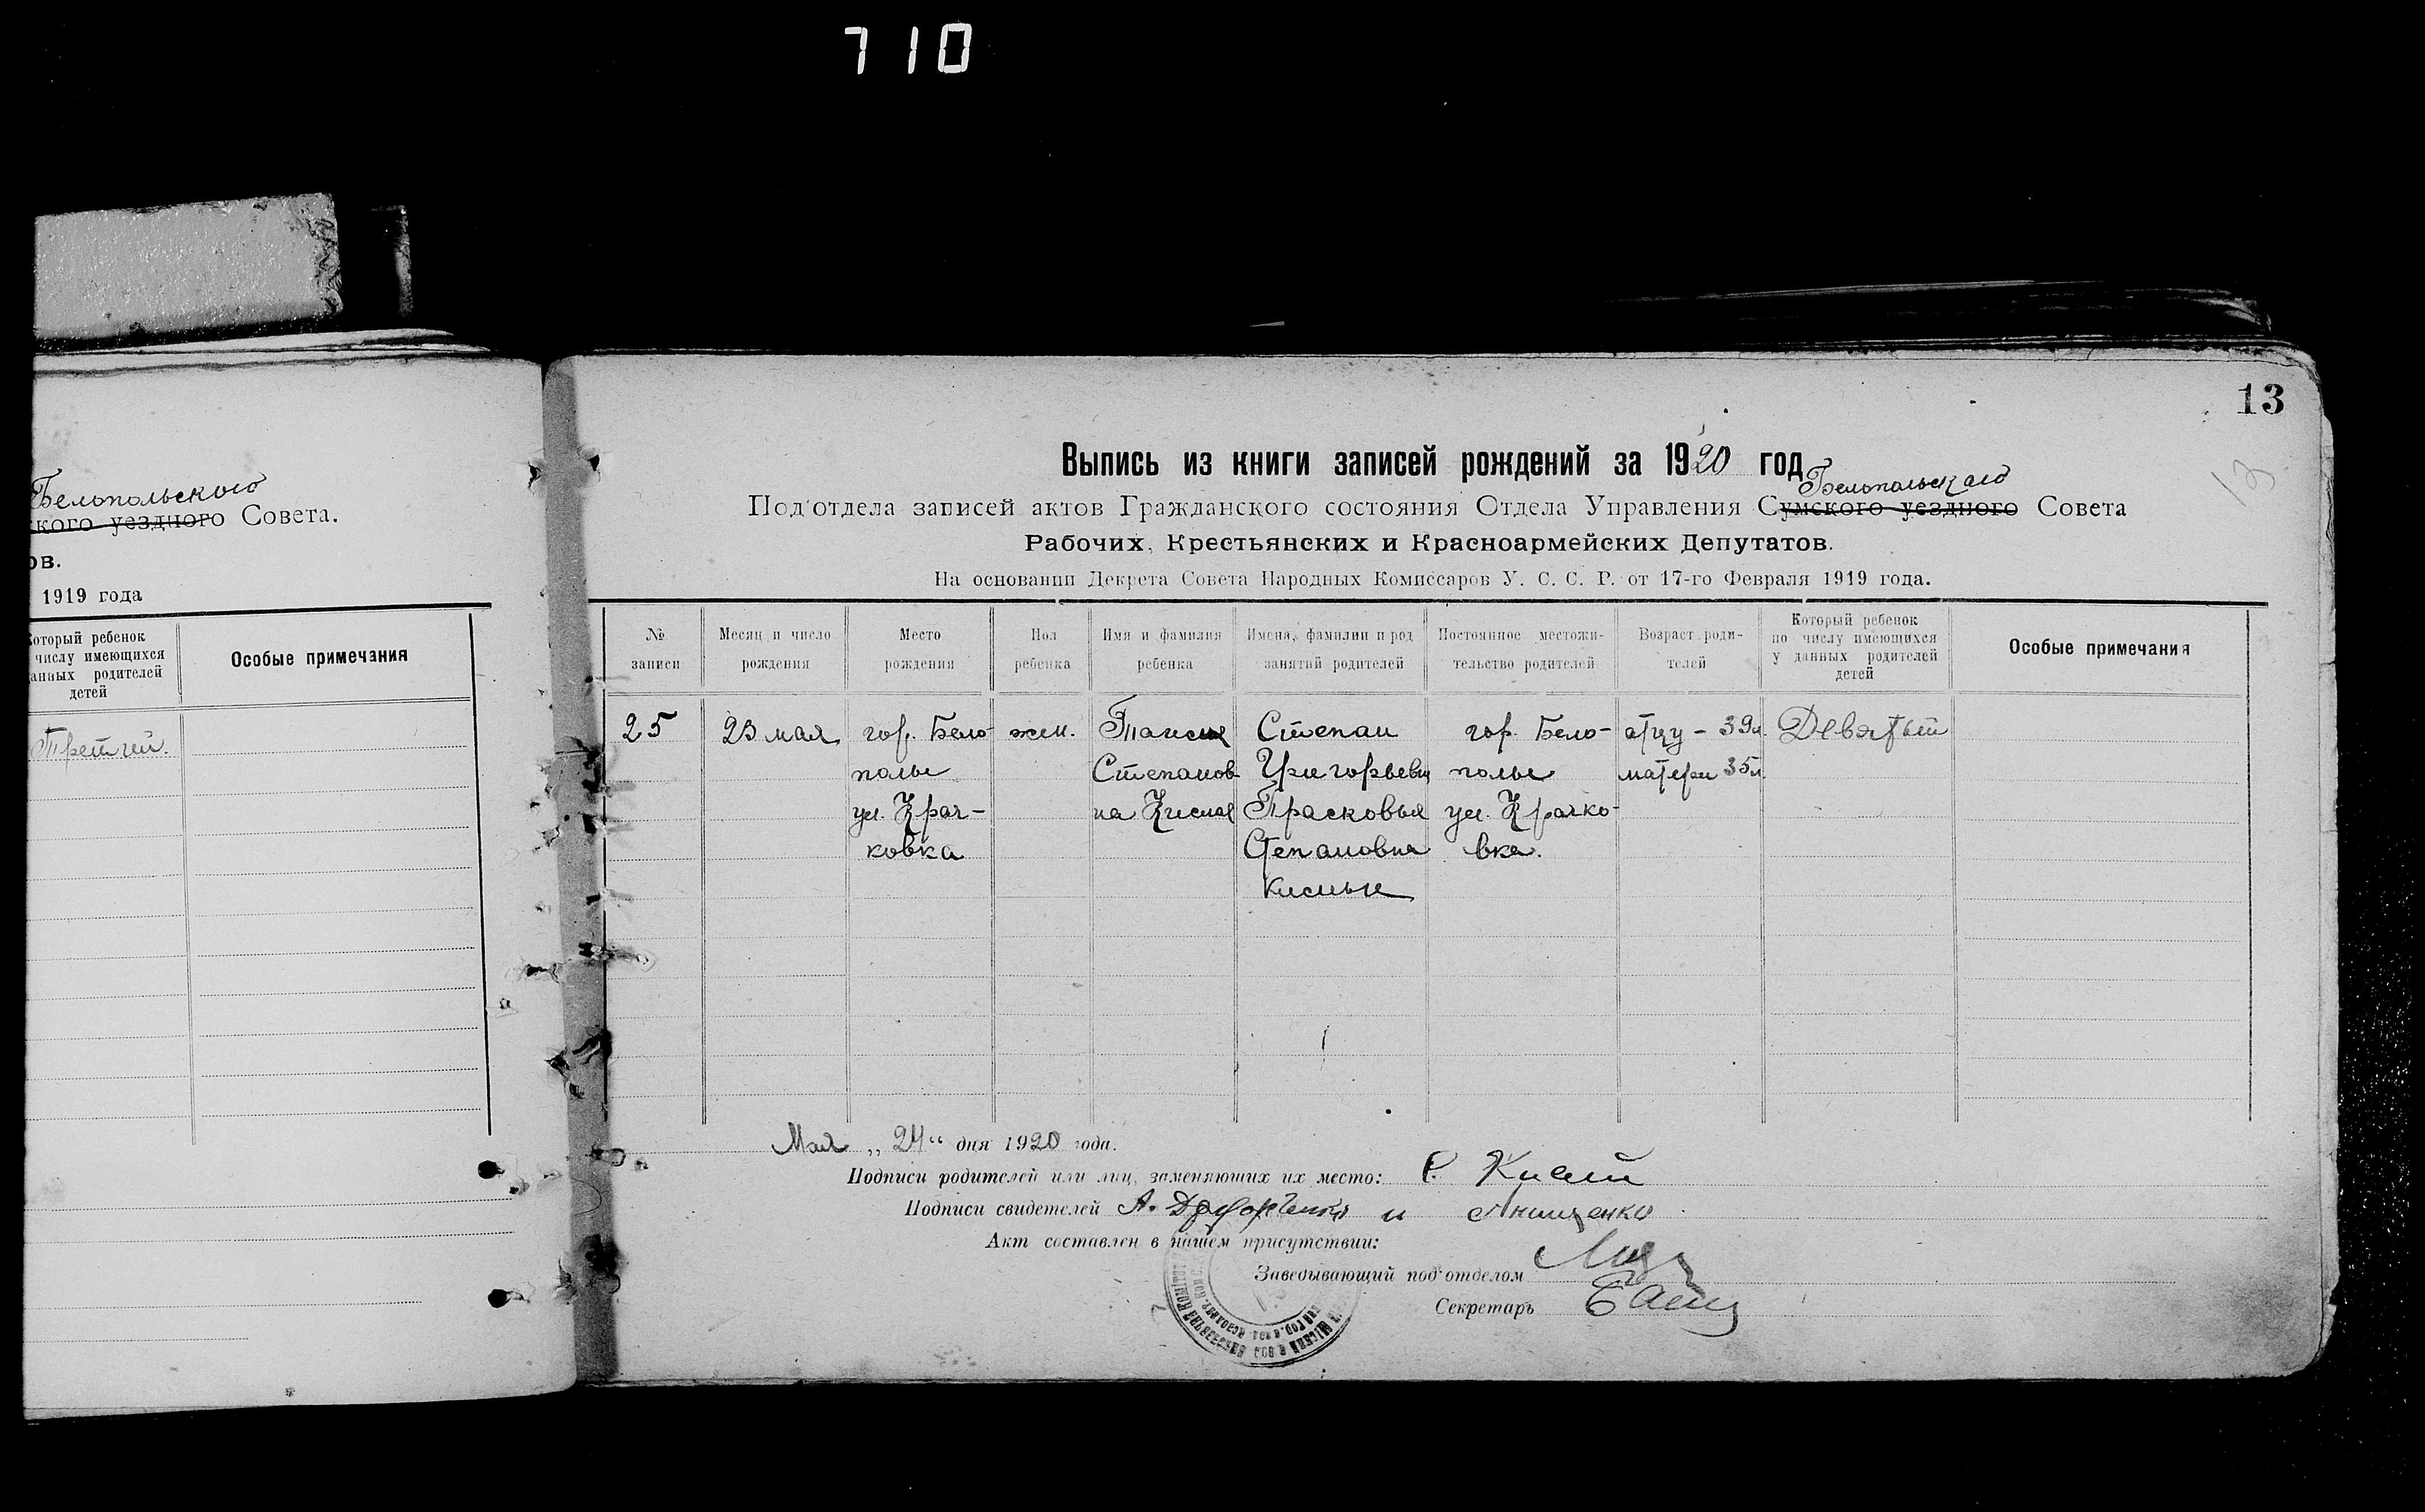 710
Белопольского
ского уездного Совета.
ов.
1919 года
Который ребенок
числу имеющихся
данных родителей
детей
Особые примечания
Третий.
13
13
Выпись из книги записей рождений за 1920 год
Белопольского
Под'отдела записей актов Гражданского состояния Отдела Управления Сумского уездного Совета
Рабочих, Крестьянских и Красноармейских Депутатов.
На основании Декрета Совета Народных Комиссаров У. С. С. Р. от 17-го Февраля 1919 года.
№
записи
Месяц и число
рождения
Место
рождения
Пол
ребенка
Имя и фамилия
ребенка
Имена, фамилии и род
занятий родителей
Постоянное местожи-
тельство родителей
Возраст роди-
телей
Который ребенок
по числу имеющихся
у данных родителей
детей
Особые примечания
25
23 мая
гор. Бело-
полье
ул. Крач-
ковка
жен.
Таисия
Степанов
на Кислая
Степан
Григорьевич
Прасковья
Степановна
Кислые
гор. Бело-
полье
ул. Крачко-
вка.
отцу - 39л.
матери 35л.
Девятый
Мая „ 24 “ дня 1920 года.
Подписи родителей или лиц, заменяющих их место: С. Кислый
Подписи свидетелей А. и Анищенко
Акт составлен в нашем присутствии:
Заведывающий под'отделом
Секретарь